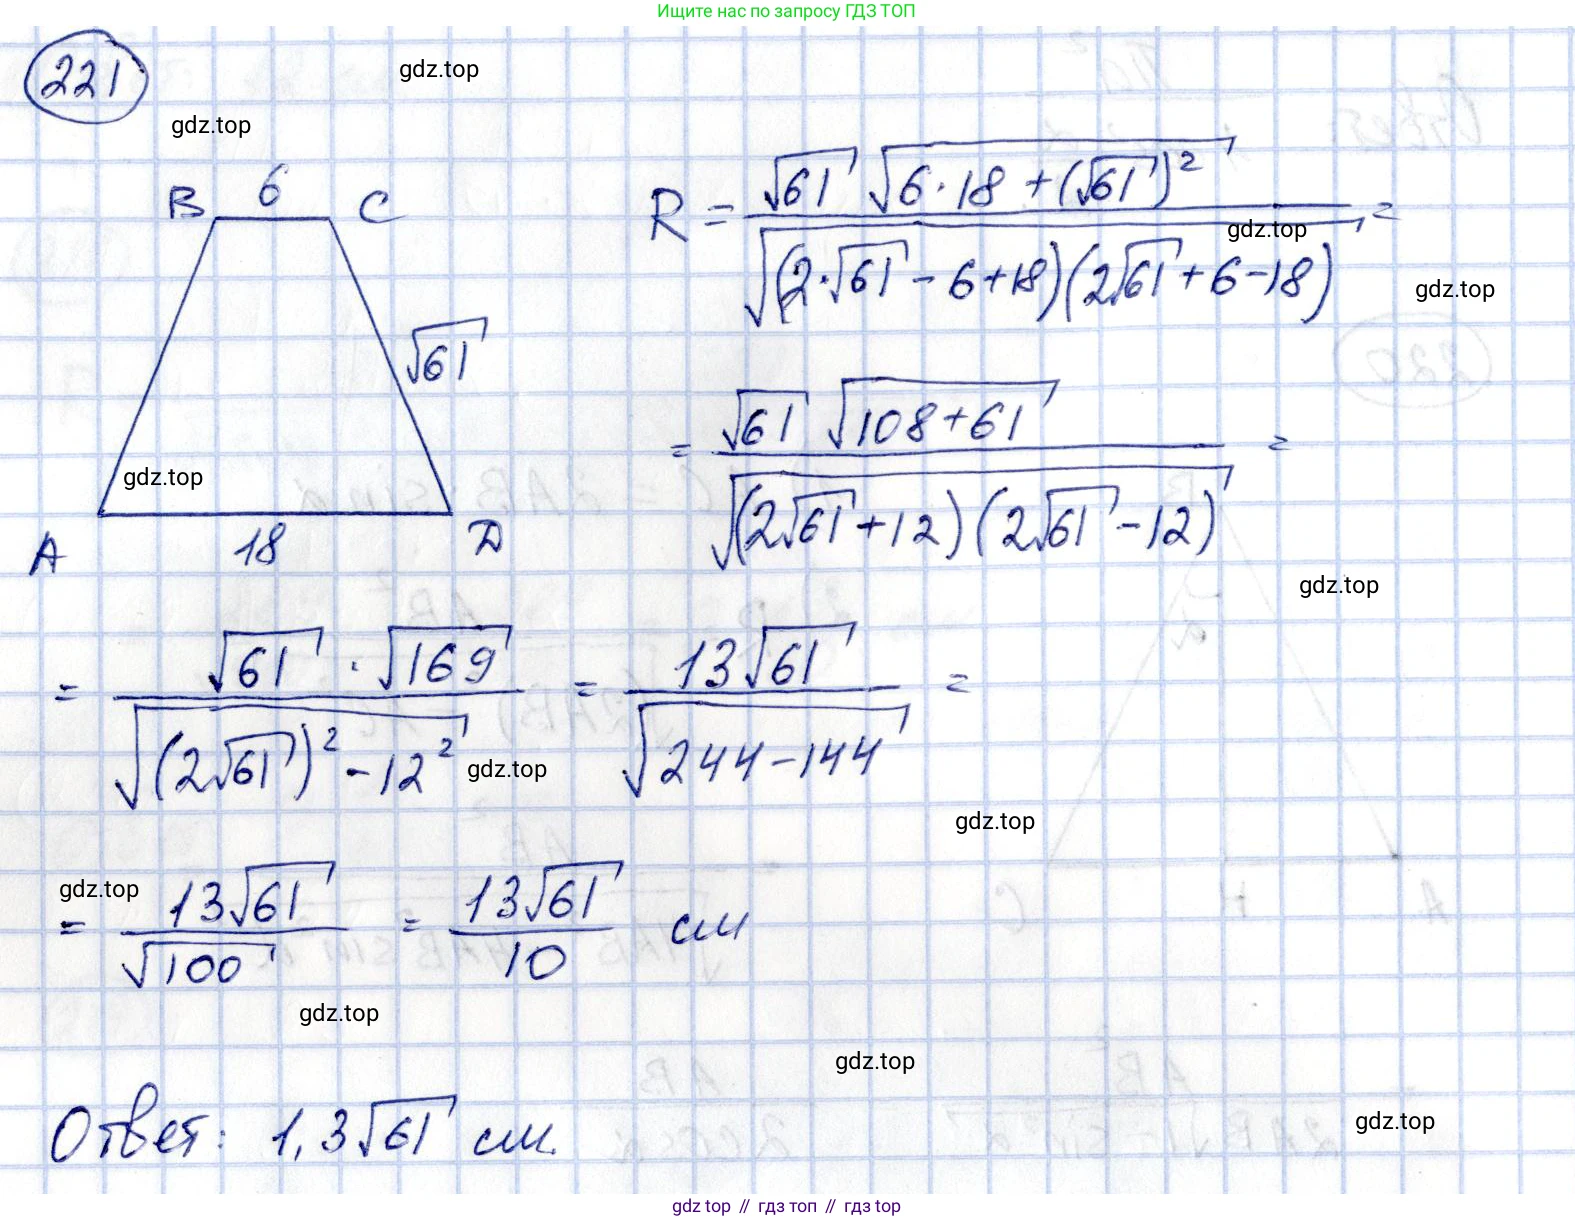 Ищите нас по запросу ГДЗ ТОП
221
gdz.top
gdz.top
B 6 C
R = √61 √(6·18+(√61)²) / √((2·√61-6+18)(2√61+6-18)) =
gdz.top
gdz.top
√61
= √61 √(108+61) / √((2√61+12)(2√61-12)) =
gdz.top
A 18 D
gdz.top
= √61 · √169 / √((2√61)²-12²) = 13√61 / √(244-144) =
gdz.top
gdz.top
gdz.top
= 13√61 / √100 = 13√61 / 10 см
gdz.top
gdz.top
Ответ: 1,3√61 см.
gdz.top
gdz.top // гдз топ // гдз top